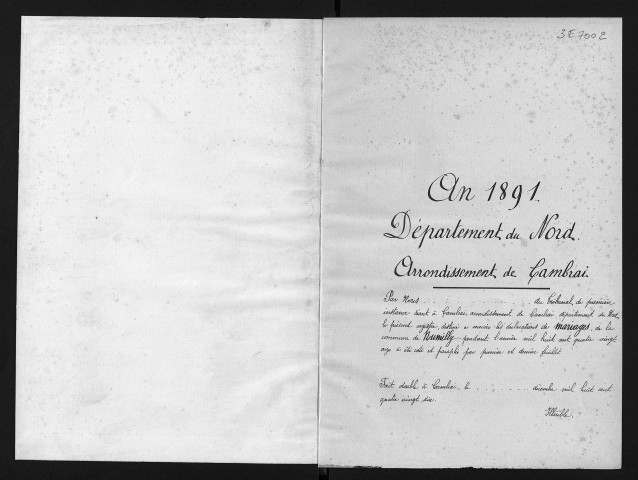 3E7002
An 1891.
Département du Nord.
Arrondissement de Cambrai.
Par Nous . . . . . . . . . . du Tribunal de première
instance séant à Cambrai, arrondissement de Cambrai département du Nord
le présent registre, destiné à inscrire les déclarations de mariages, de la
commune de Rumilly pendant l'année mil huit cent quatre vingt
onze a été coté et paraphé par premier et dernier feuillet.
Fait double à Cambrai le . . . . . . . . . décembre mil huit cent
quatre vingt dix.
Illisible.